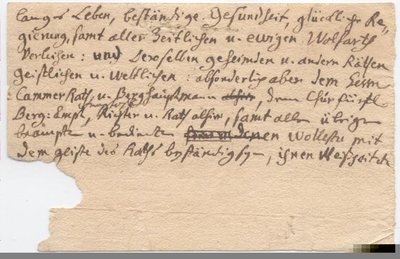 langes Leben, beständige Gesundheit, glückliche Re=
gierung, samt aller Zeitlichen u ewigen Wolfarth
Verleihen: und Deroselben geheimden u andern Räthen
geistlichen u Weltlichen: absonderlich aber dem Herrn
Cammer Rath, u Berghauptmann alhier, dem Churfürstl
Berg: Ampt, Richter u Rath alhier, samt allen übrigen
Beampten u bedienten denen wollestu mit
dem Geiste des Raths beständigl, ihnen Weißheit